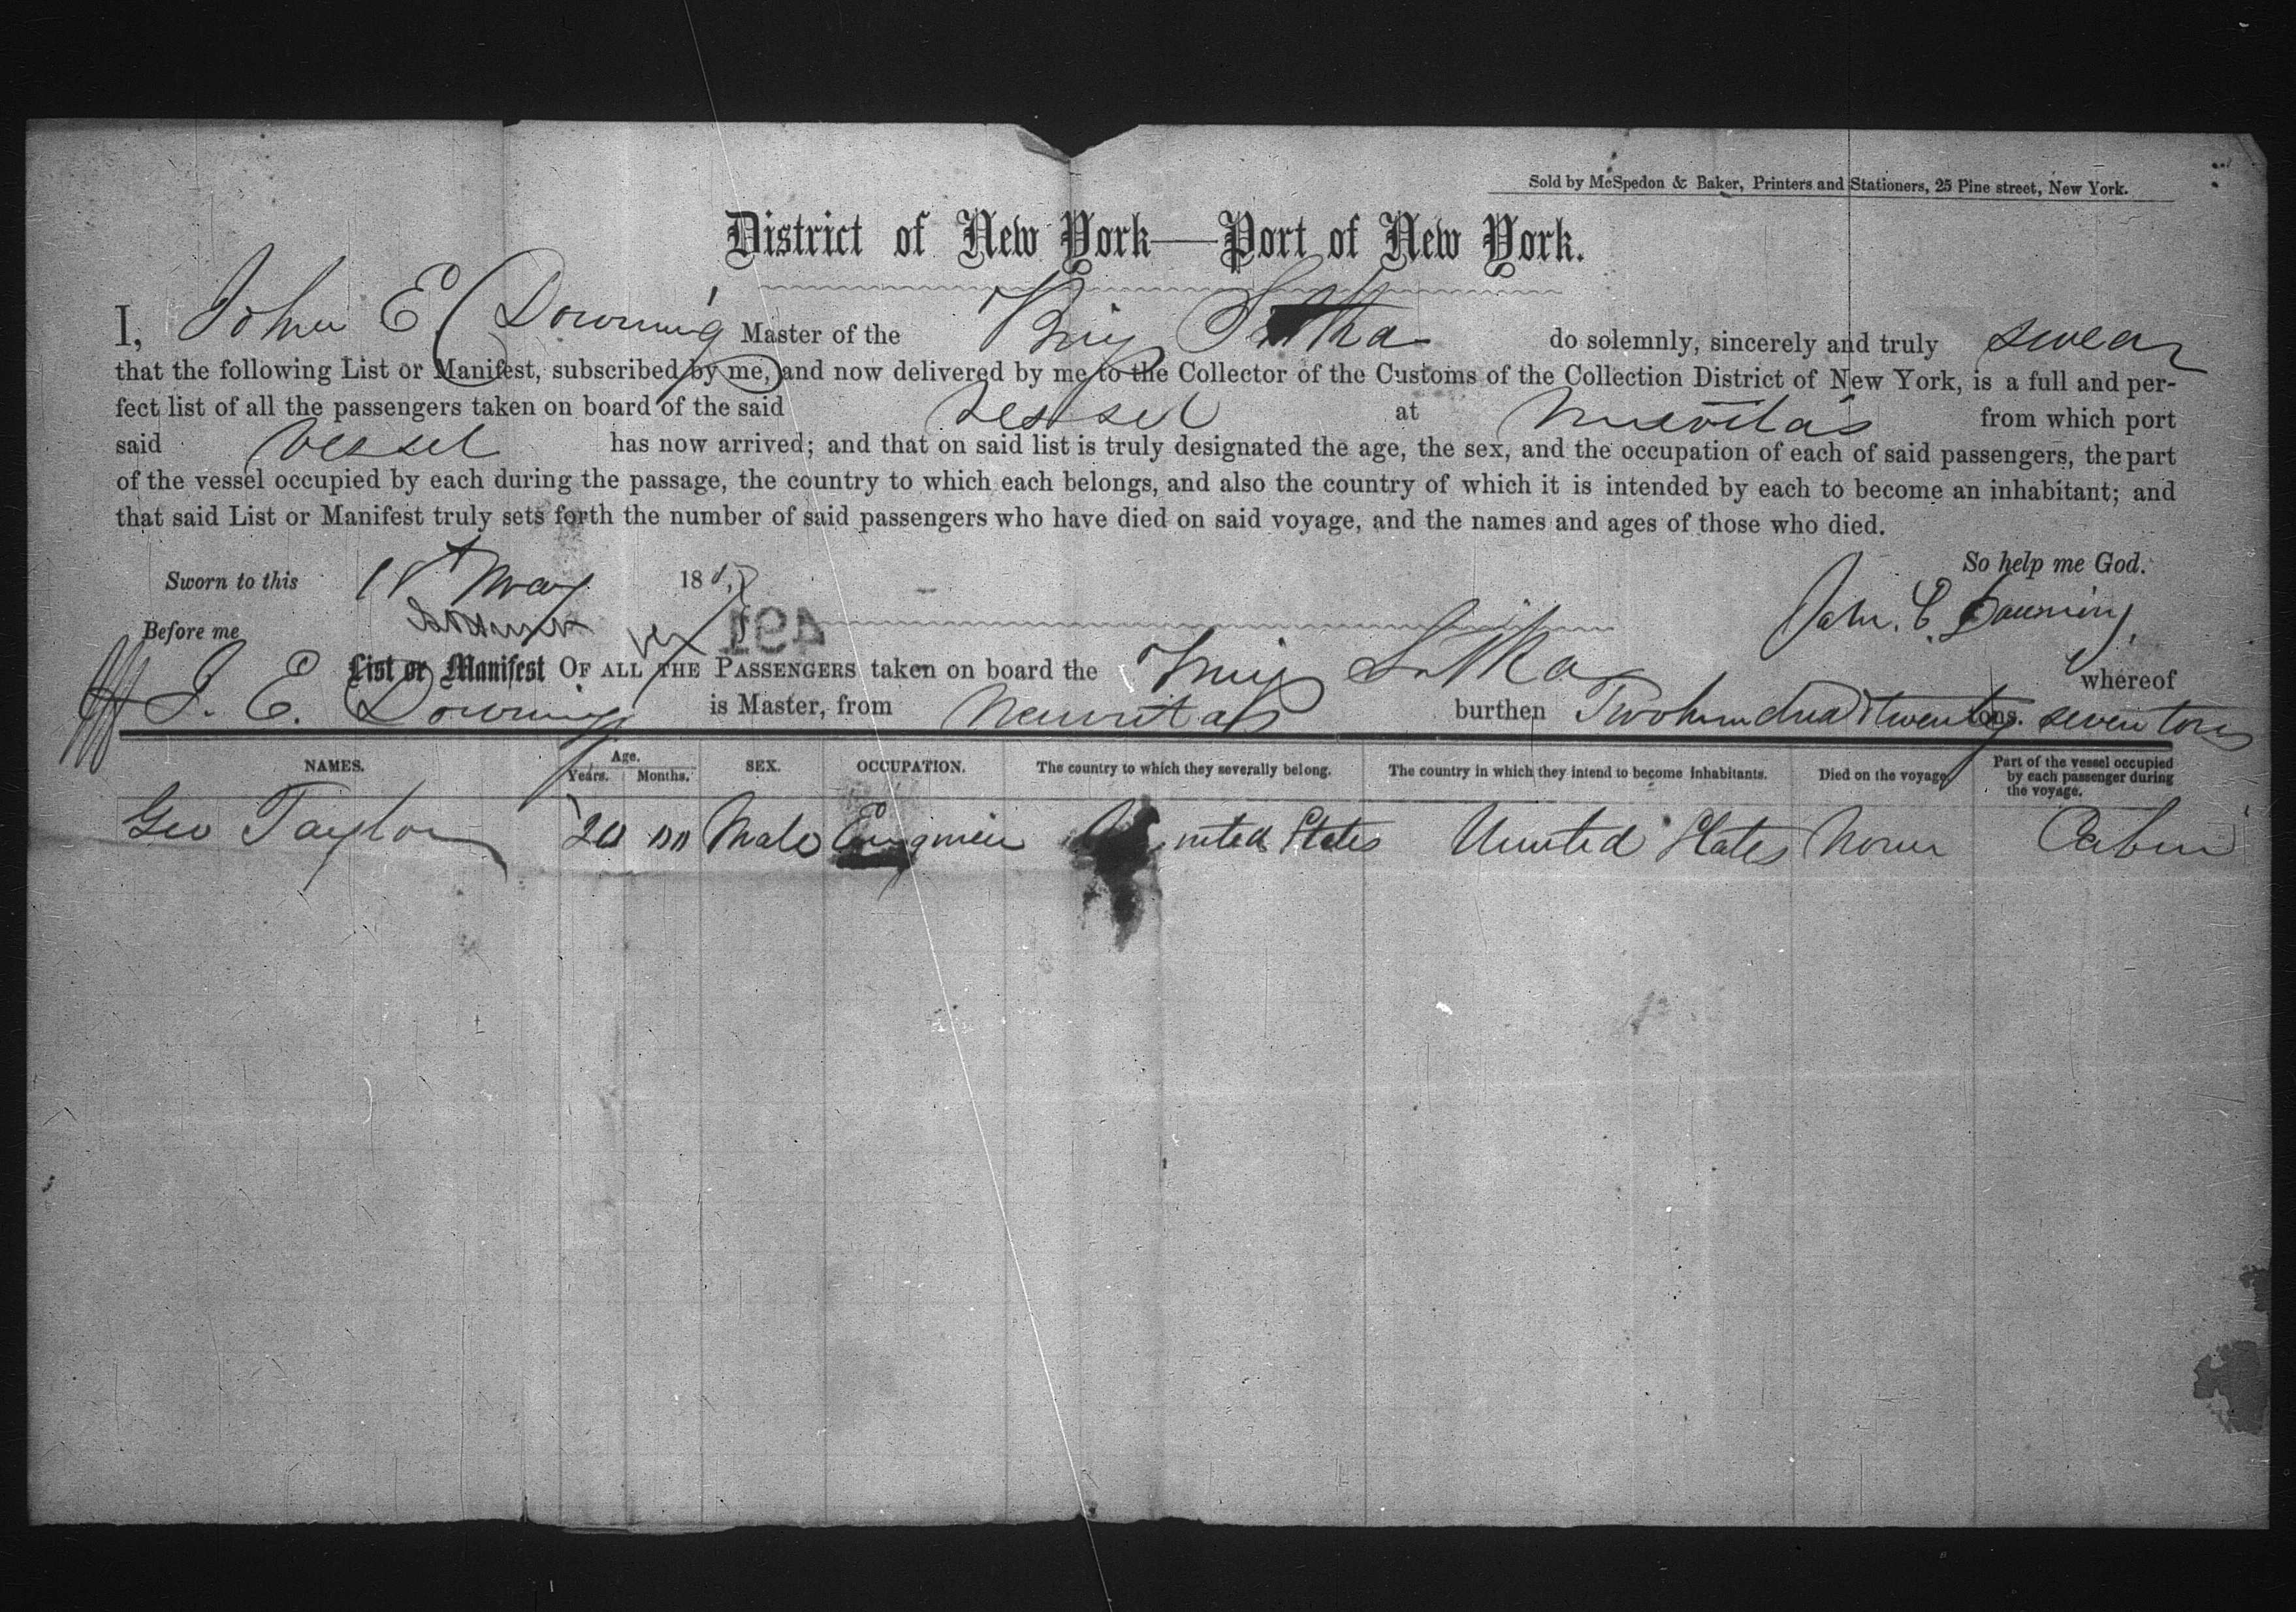 Sold by McSpedon & Baker, Printers and Stationers, 25 Pine street, New York.
District of New York—Port of New York.
I, John E. Downing Master of the Brig Sitka do solemnly, sincerely and truly swear
that the following List or Manifest, subscribed by me, and now delivered by me to the Collector of the Customs of the Collection District of New York, is a full and per-
fect list of all the passengers taken on board of the said Vessel at Nuevitas from which port
said Vessel has now arrived; and that on said list is truly designated the age, the sex, and the occupation of each of said passengers, the part
of the vessel occupied by each during the passage, the country to which each belongs, and also the country of which it is intended by each to become an inhabitant; and
that said List or Manifest truly sets forth the number of said passengers who have died on said voyage, and the names and ages of those who died.
So help me God.
Sworn to this May 18
John. E. Downing
Before me
491
List or Manifest OF ALL THE PASSENGERS taken on board the Brig Sitka whereof
J. E. Downing is Master, from Neuvitas burthen Two hundred twenty tons. seven tons
NAMES. Age. Years. Months. SEX. OCCUPATION. The country to which they severally belong. The country in which they intend to become inhabitants. Died on the voyage. Part of the vessel occupied by each passenger during the voyage.
Geo Taylor 20 00 Male United States United States None Cabin